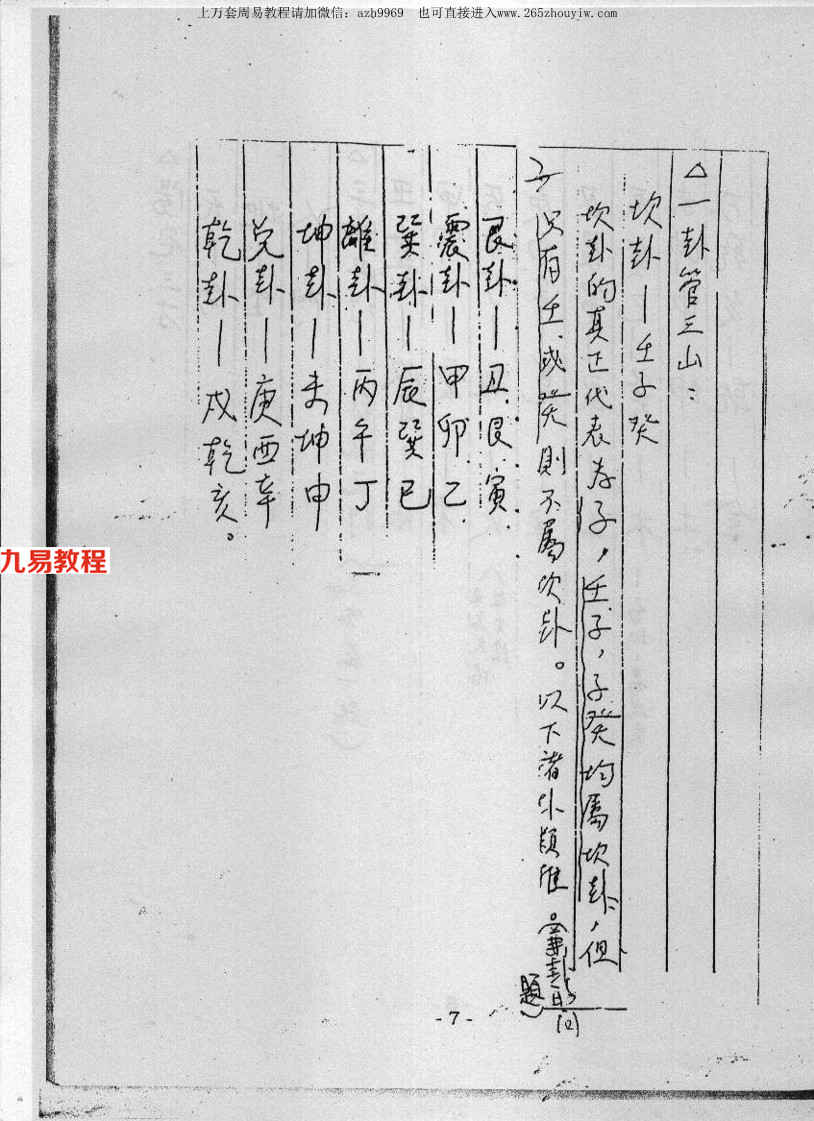 上万套周易教程请加微信：azb9969 也可直接进入www.265zhouyiw.com
△一卦管三山：
坎卦—壬子癸
坎卦的真正代表为子，壬子，子癸均屬坎卦，但
只有壬或癸則不屬坎卦。以下諸卦類推。
艮卦—丑艮寅
震卦—甲卯乙
巽卦—辰巽巳
離卦—丙午丁
坤卦—未坤申
兌卦—庚酉辛
乾卦—戌乾亥。
九易教程
-7-